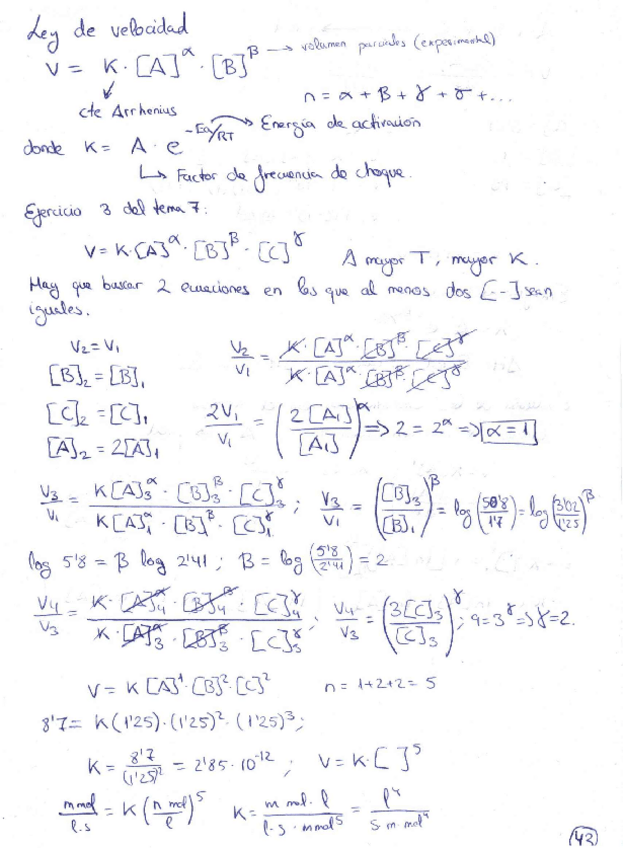 Ley de velocidad
V = K · [A]^α · [B]^β → volumen parciales (experimental)
n = α + β + γ + σ + ...
cte Arrhenius
Energía de activación
donde K = A · e^(-Ea/RT)
↳ Factor de frecuencia de choque.
Ejercicio 3 del tema 7:
V = K·[A]^α · [B]^β · [C]^γ A mayor T, mayor K.
Hay que buscar 2 ecuaciones en las que al menos dos [--] sean
iguales.
V₂ = V₁ V₂/V₁ = K·[A]^α·[B]^β·[C]^γ / K·[A]^α·[B]^β·[C]^γ
[B]₂ = [B]₁
[C]₂ = [C]₁ 2V₁/V₁ = (2[A₁]/[A₁])^α => 2 = 2^α => α = 1
[A]₂ = 2[A]₁
V₃/V₁ = K[A]₃^α · [B]₃^β · [C]₃^γ / K[A]₁^α · [B]₁^β · [C]₁^γ ; V₃/V₁ = ([B]₃/[B]₁)^β = log(50'8/1'7) = log(3'02/1'25)^β
log 5'8 = β log 2'41 ; β = log(5'8/2'41) = 2
V₄/V₃ = K·[A]₄^α·[B]₄^β·[C]₄^γ / K·[A]₃^α·[B]₃^β·[C]₃^γ ; V₄/V₃ = (3[C]₃/[C]₃)^γ ; 9 = 3^γ => γ = 2.
V = K [A]¹·[B]²·[C]² n = 1+2+2 = 5
8'7 = K(1'25)·(1'25)²·(1'25)³;
K = 8'7/(1'25)² = 2'85·10⁻¹² ; V = K·[ ]⁵
mmol/l·s = K(n mol/l)⁵ K = m mol·l / l·s·mmol⁵ = l⁴/s m·mol⁴
42